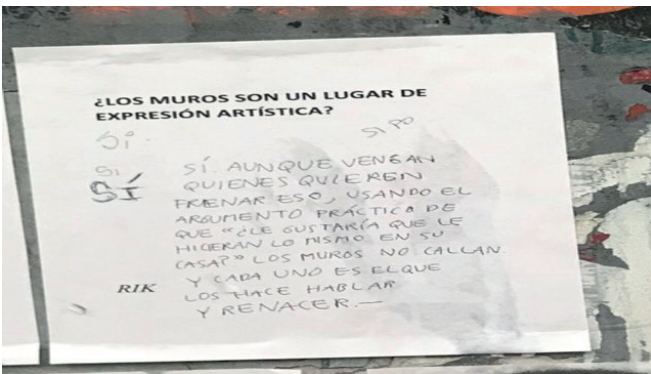 ¿LOS MUROS SON UN LUGAR DE
EXPRESIÓN ARTÍSTICA?
Si.
SI PO
SI
SÍ
SÍ. AUNQUE VENGAN
QUIENES QUIEREN
FRENAR ESO, USANDO EL
ARGUMENTO PRÁCTICO DE
QUE "¿LE GUSTARÍA QUE LE
HICIERAN LO MISMO EN SU
CASA?" LOS MUROS NO CALLAN
Y CADA UNO ES EL QUE
LOS HACE HABLAR
Y RENACER.—
RIK